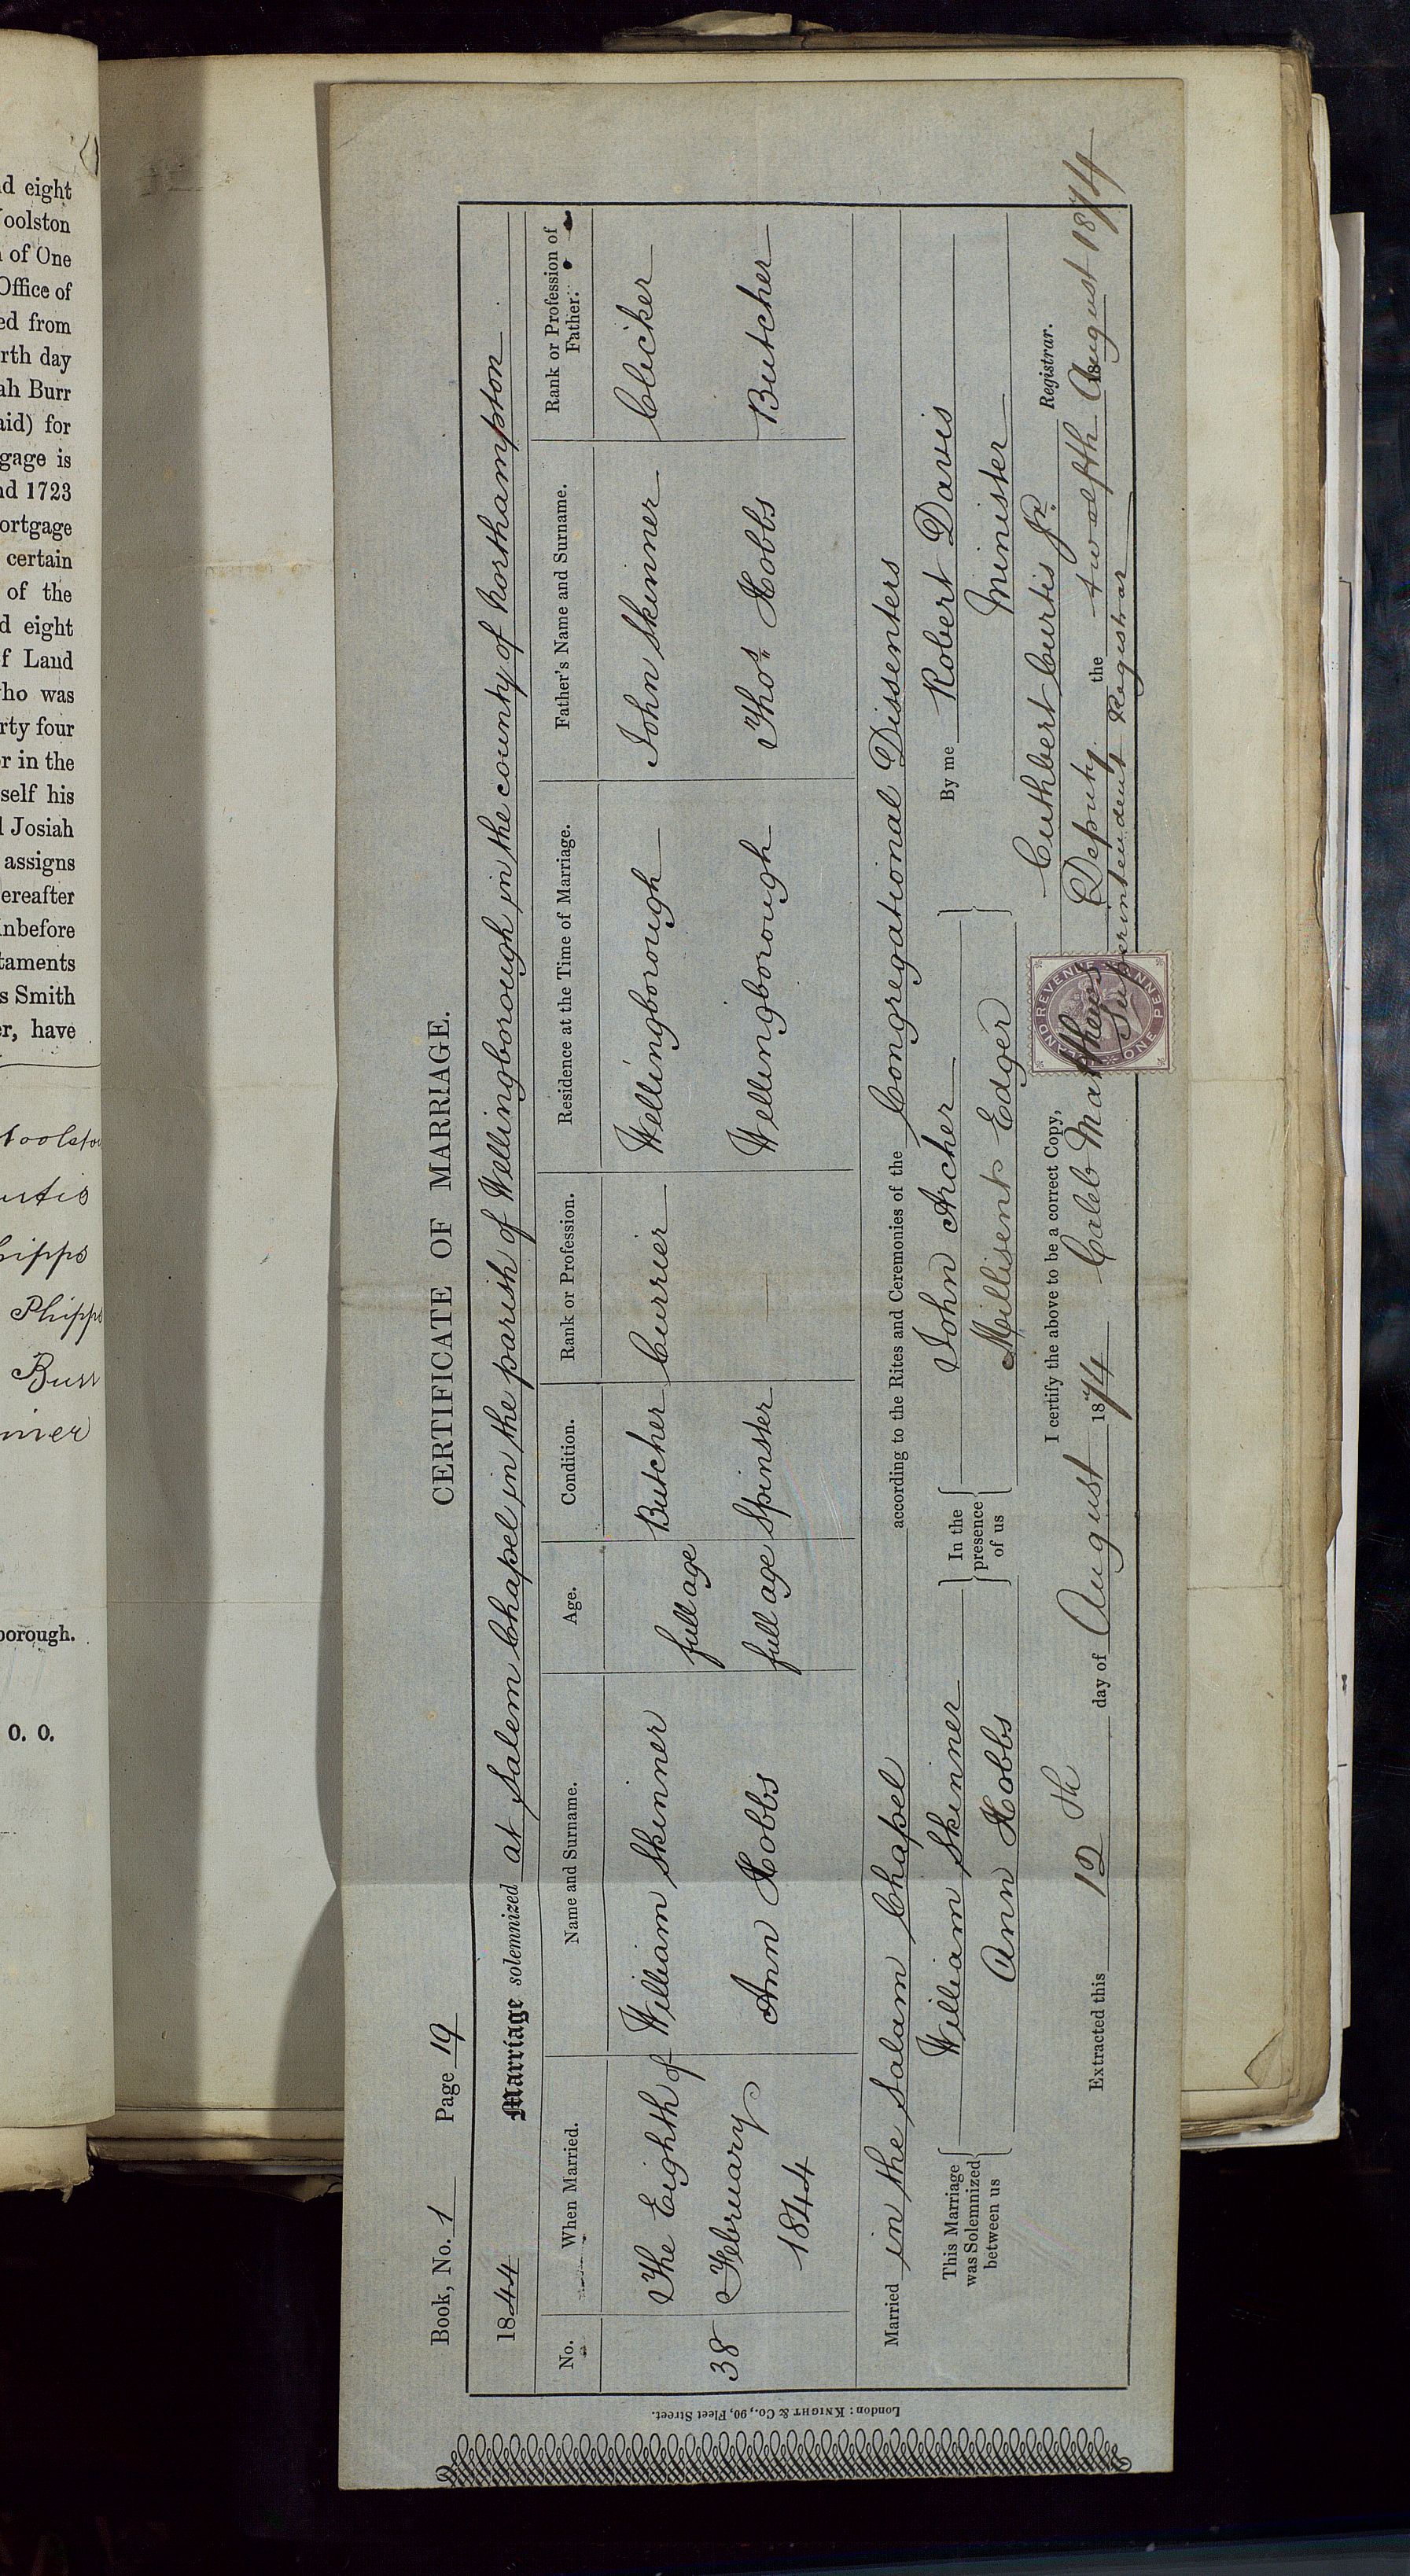 d eight
oolston
of One
Office of
ed from
rth day
ah Burr
aid) for
gage is
nd 1723
ortgage
certain
of the
d eight
f Land
ho was
rty four
r in the
self his
Josiah
assigns
ereafter
nbefore
taments
s Smith
er, have
oolston
urtis
hipps
Phipps
Burr
nner
borough.
0. 0.
Book, No. 1 Page 19 CERTIFICATE OF MARRIAGE.
1844 Marriage solemnized at Salem Chapel in the parish of Wellingborough in the county of Northampton
No. When Married. Name and Surname. Age. Condition. Rank or Profession. Residence at the Time of Marriage. Father's Name and Surname. Rank or Profession of Father.
The Eighth of William Skinner full age Butcher Currier Wellingborough John Skinner Clicker
38 February Ann Hobbs full age Spinster — Wellingborough Thos. Hobbs Butcher
1844
Married in the Salam Chapel according to the Rites and Ceremonies of the Congregational Dissenters
This Marriage was Solemnized between us William Skinner In the presence of us John Archer By me Robert Davis
Ann Hobbs Millisent Edger Minister
Cuthbert Curtis Jr. Registrar.
I certify the above to be a correct Copy,
Extracted this 12th day of August 1874 Caleb Matthews Deputy the twelfth August 1874
Superintendent Registrar
INLAND REVENUE ONE PENNY
London: KNIGHT & Co., 90, Fleet Street.